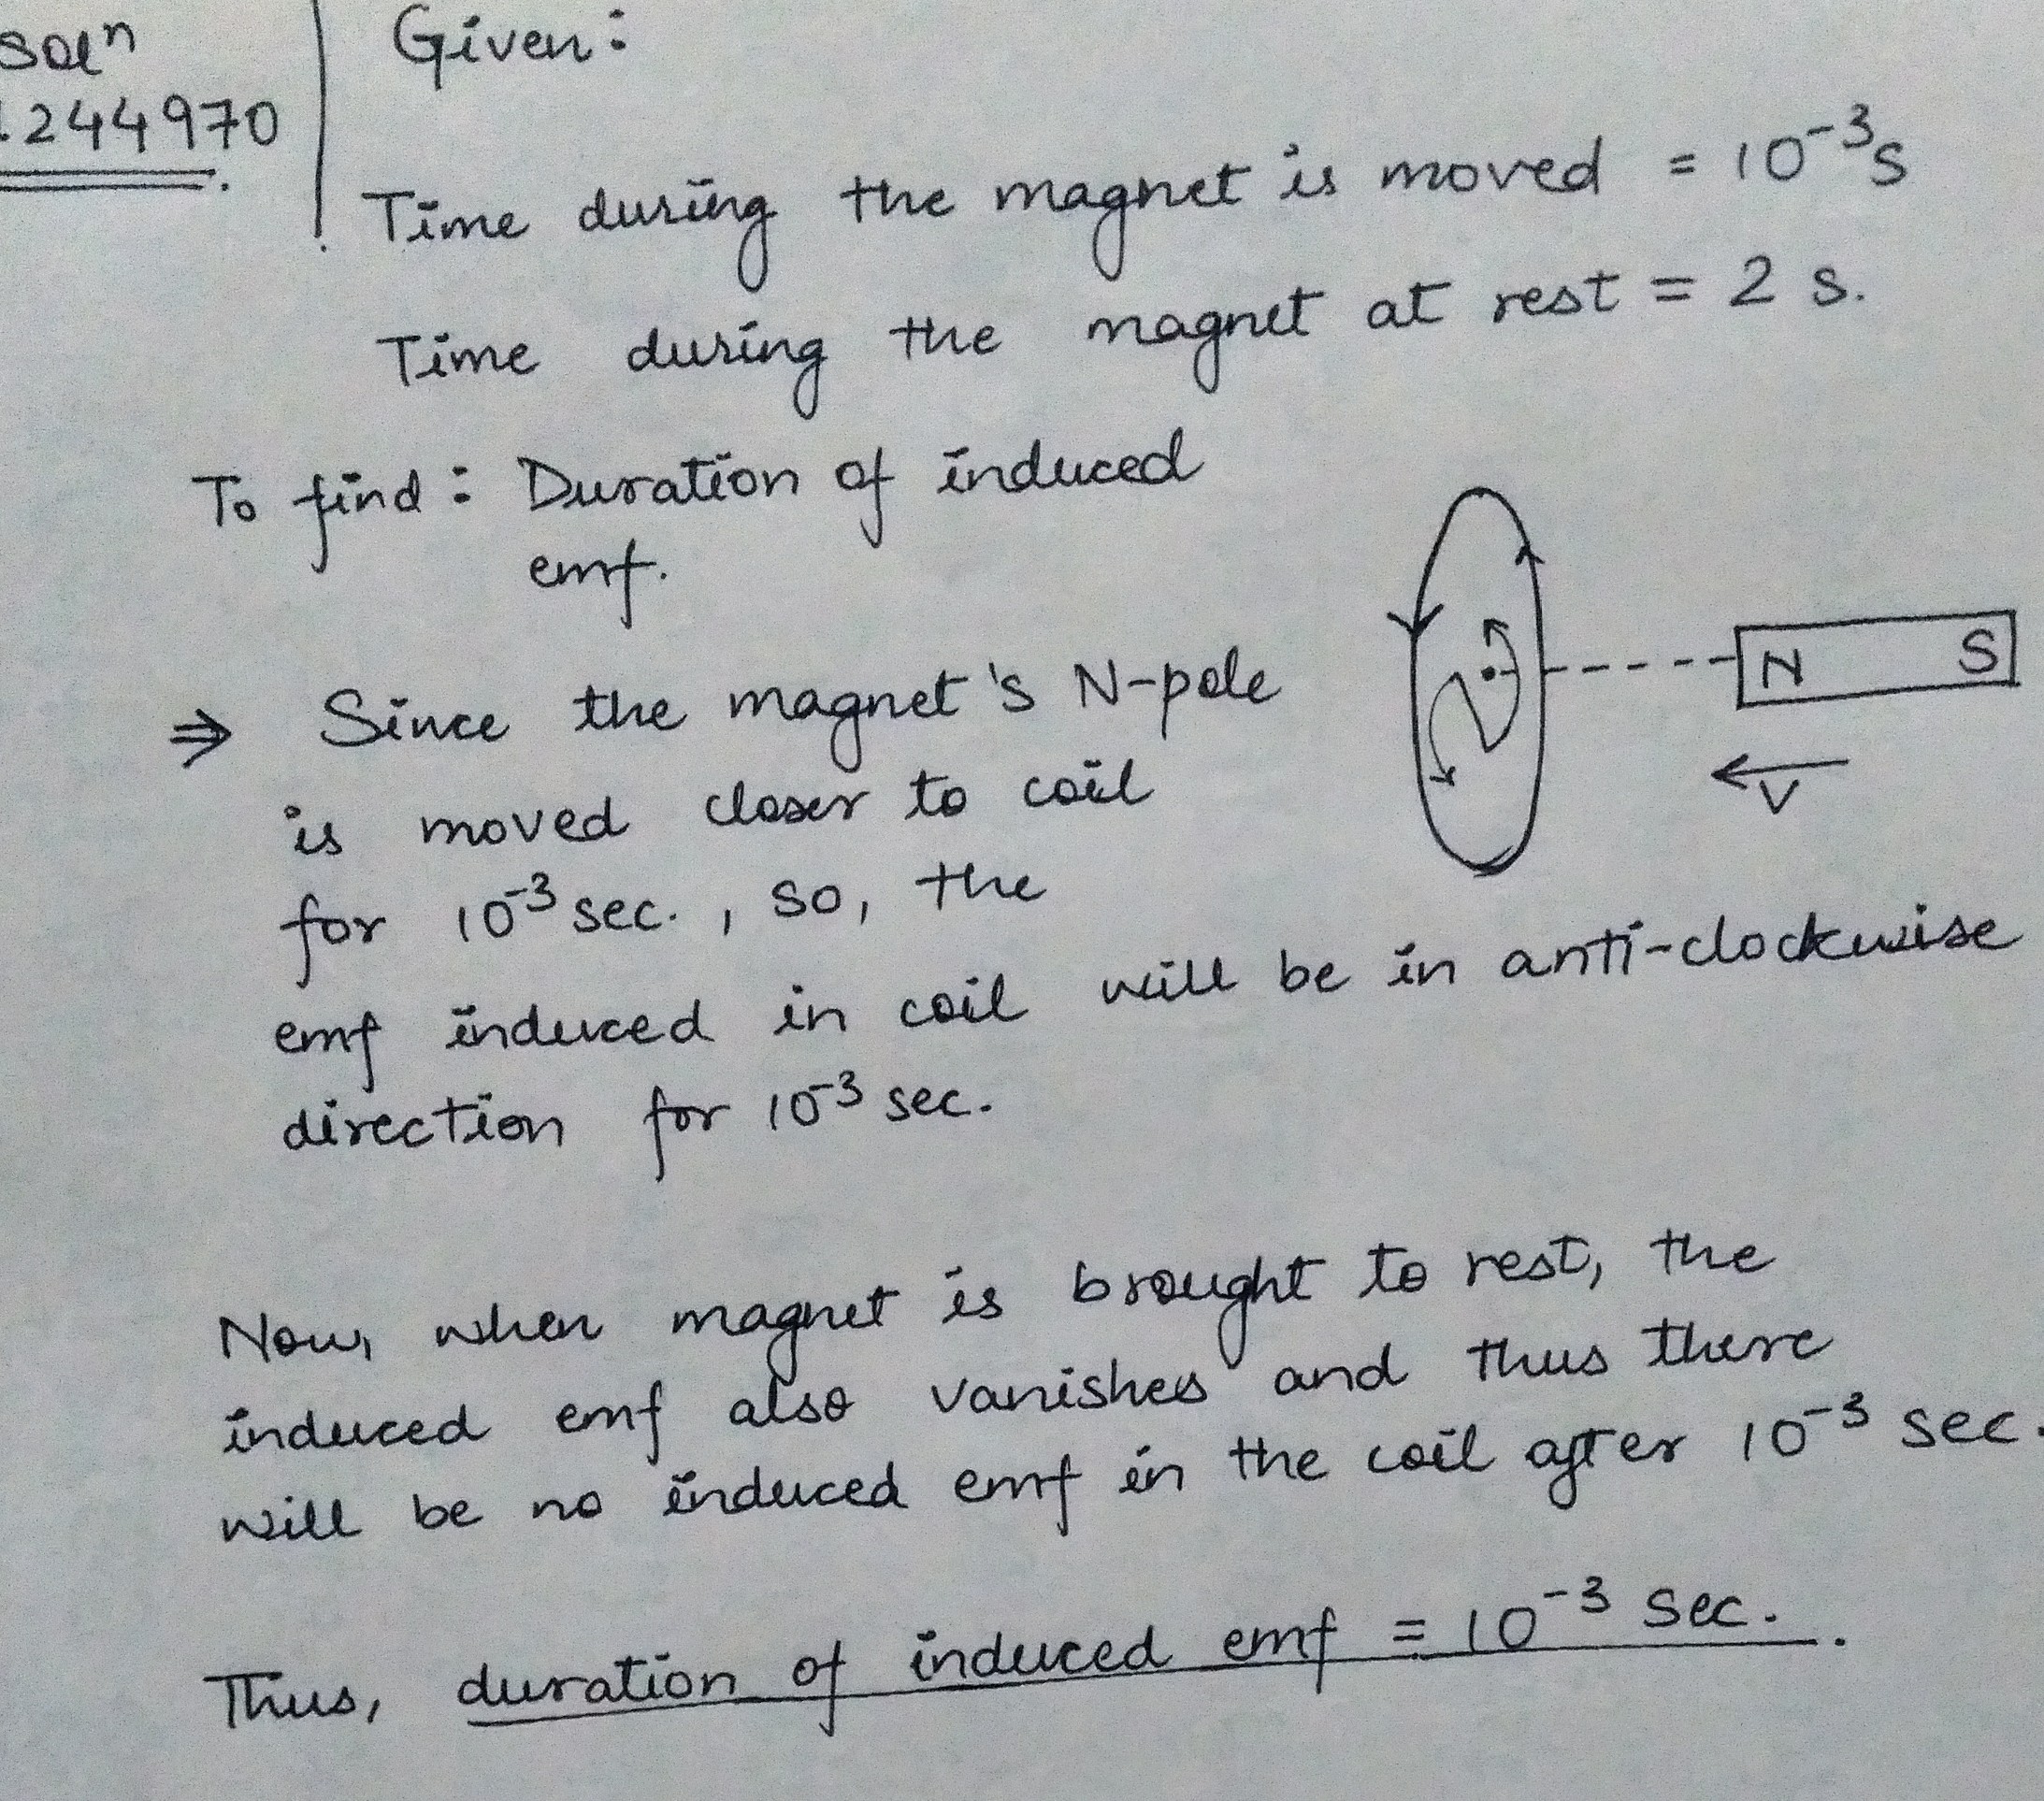 Solⁿ
1244970
Given:
Time during the magnet is moved = 10⁻³s
Time during the magnet at rest = 2 s.
To find: Duration of induced
emf.
N S
V
⇒ Since the magnet's N-pole
is moved closer to coil
for 10⁻³ sec., so, the
emf induced in coil will be in anti-clockwise
direction for 10⁻³ sec.
Now, when magnet is brought to rest, the
induced emf also vanishes and thus there
will be no induced emf in the coil after 10⁻³ sec.
Thus, duration of induced emf = 10⁻³ sec.